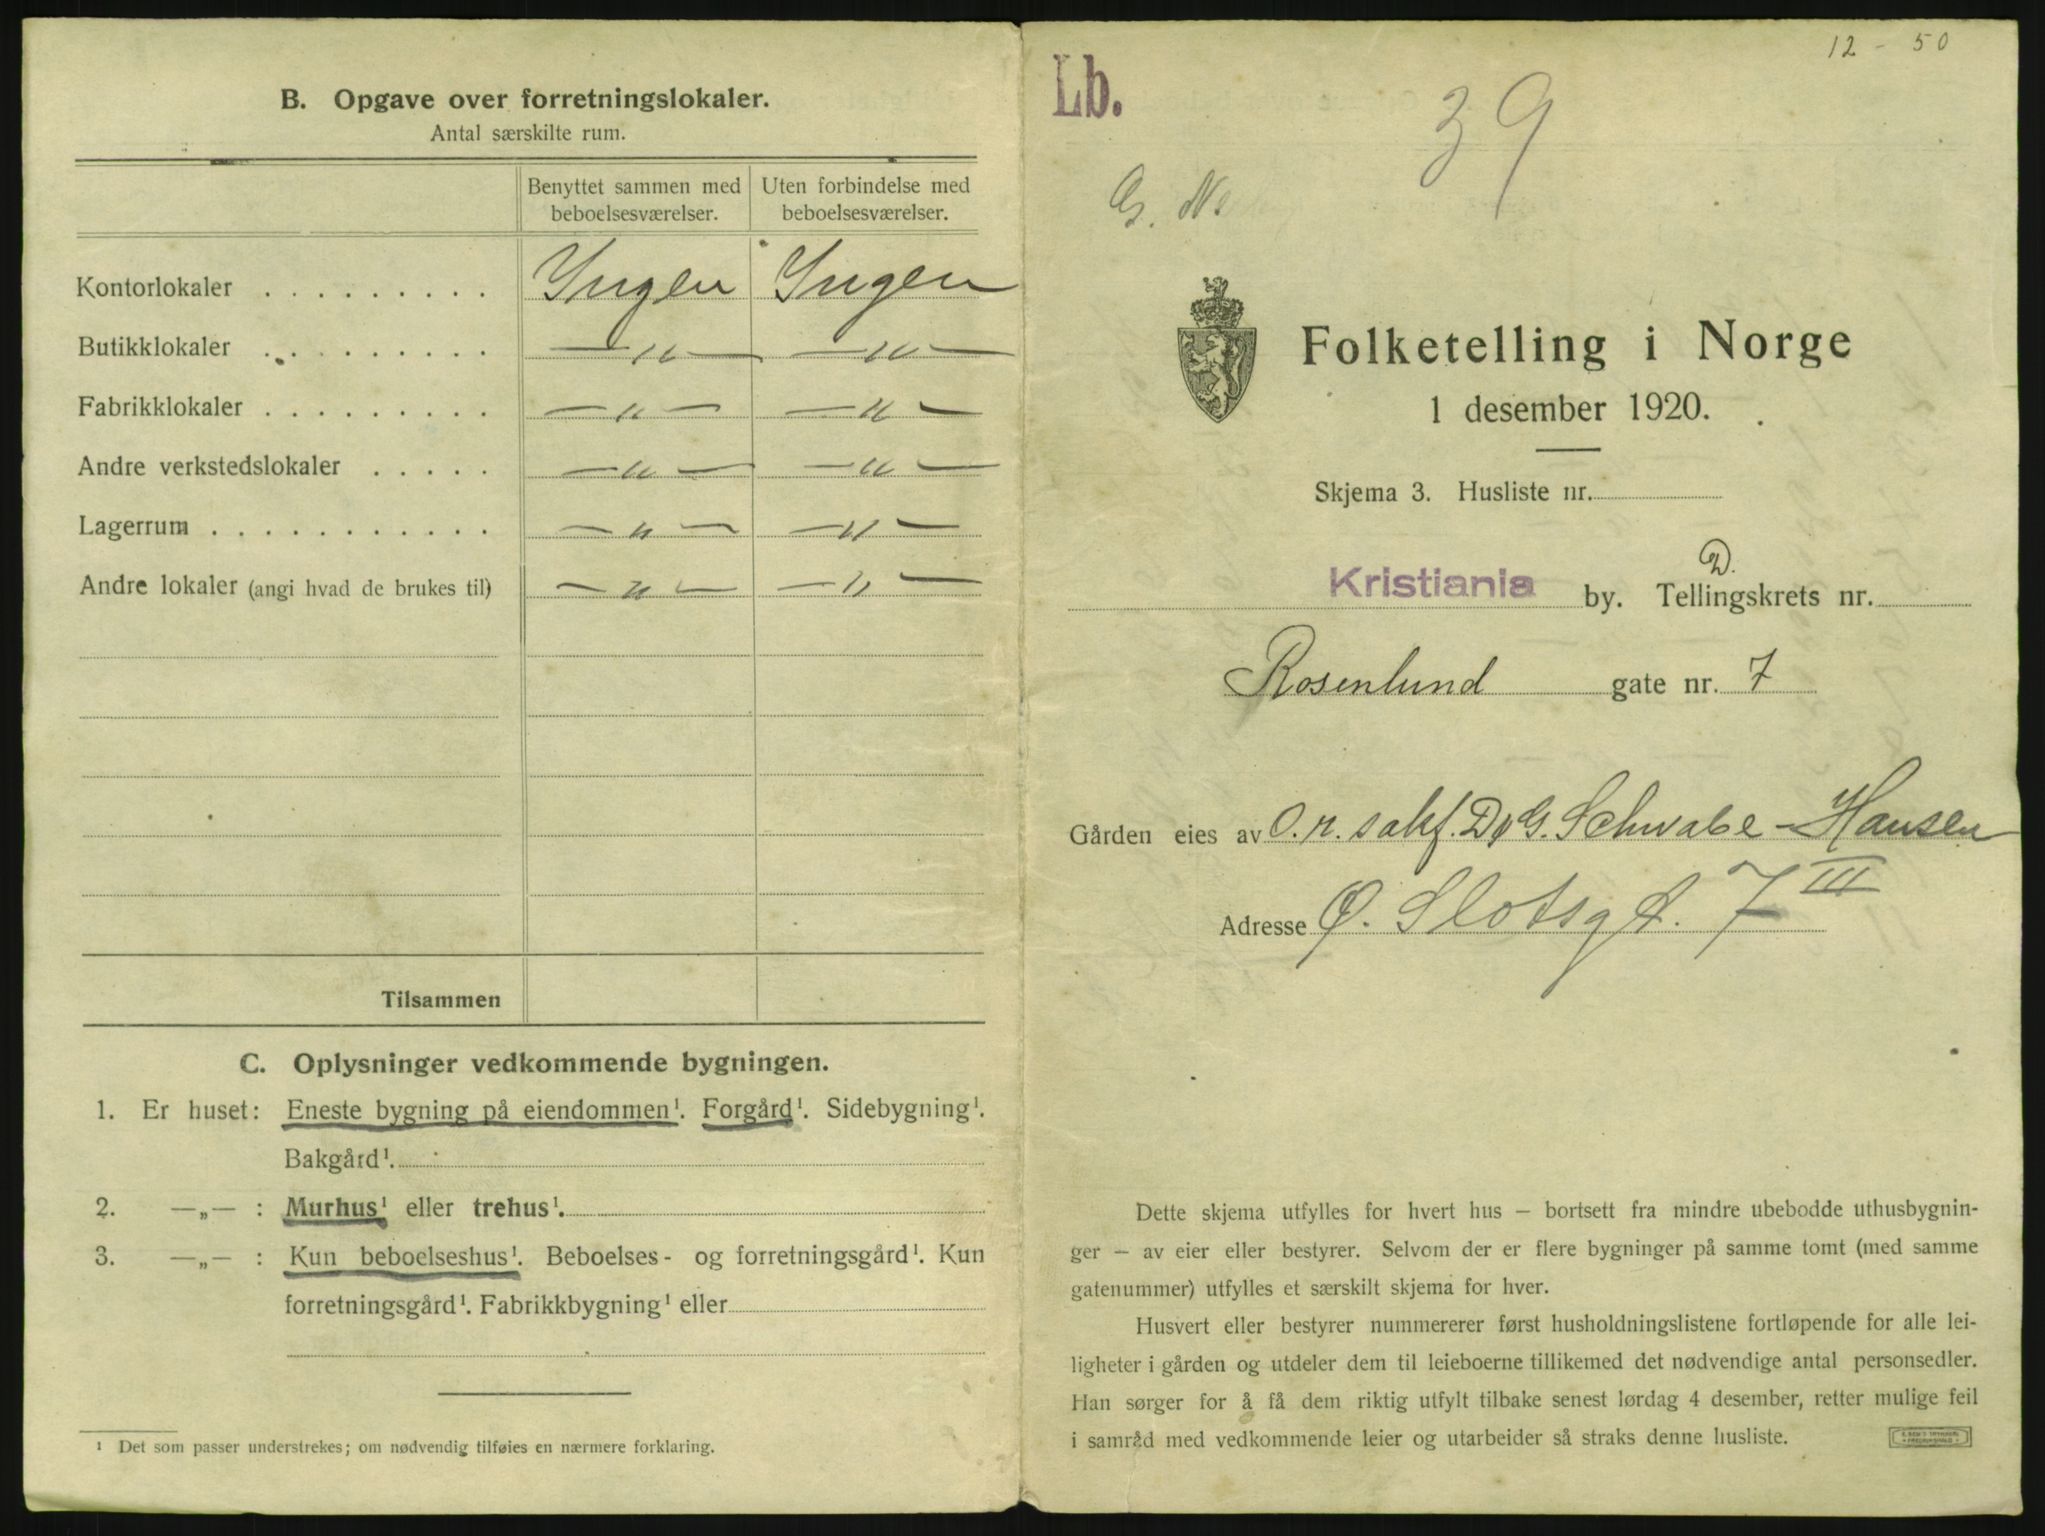 B. Opgave over forretningslokaler.
Antal særskilte rum.
Benyttet sammen med beboelsesværelser.
Uten forbindelse med beboelsesværelser.
Kontorlokaler . . . . . . . . . Ingen Ingen
Butikklokaler . . . . . . . . . —„— —„—
Fabrikklokaler . . . . . . . . . —„— —„—
Andre verkstedslokaler . . . . . —„— —„—
Lagerrum . . . . . . . . . . . —„— —„—
Andre lokaler (angi hvad de brukes til) —„— —„—
Tilsammen
C. Oplysninger vedkommende bygningen.
1. Er huset: Eneste bygning på eiendommen¹. Forgård¹. Sidebygning¹.
Bakgård¹.
2. —„— : Murhus¹ eller trehus¹.
3. —„— : Kun beboelseshus¹. Beboelses- og forretningsgård¹. Kun
forretningsgård¹. Fabrikkbygning¹ eller
¹ Det som passer understrekes; om nødvendig tilføies en nærmere forklaring.
12 - 50
Lb.
39
G. No
Folketelling i Norge
1 desember 1920.
Skjema 3. Husliste nr.
D.
Kristiania by. Tellingskrets nr.
Rosenlund gate nr. 7
Gården eies av O.r. sakf. G. Schwabe-Hansen
Adresse Ø. Slotsgt. 7 III
Dette skjema utfylles for hvert hus – bortsett fra mindre ubebodde uthusbygnin-
ger – av eier eller bestyrer. Selvom der er flere bygninger på samme tomt (med samme
gatenummer) utfylles et særskilt skjema for hver.
Husvert eller bestyrer nummererer først husholdningslistene fortløpende for alle lei-
ligheter i gården og utdeler dem til leieboerne tillikemed det nødvendige antal personsedler.
Han sørger for å få dem riktig utfylt tilbake senest lørdag 4 desember, retter mulige feil
i samråd med vedkommende leier og utarbeider så straks denne husliste.